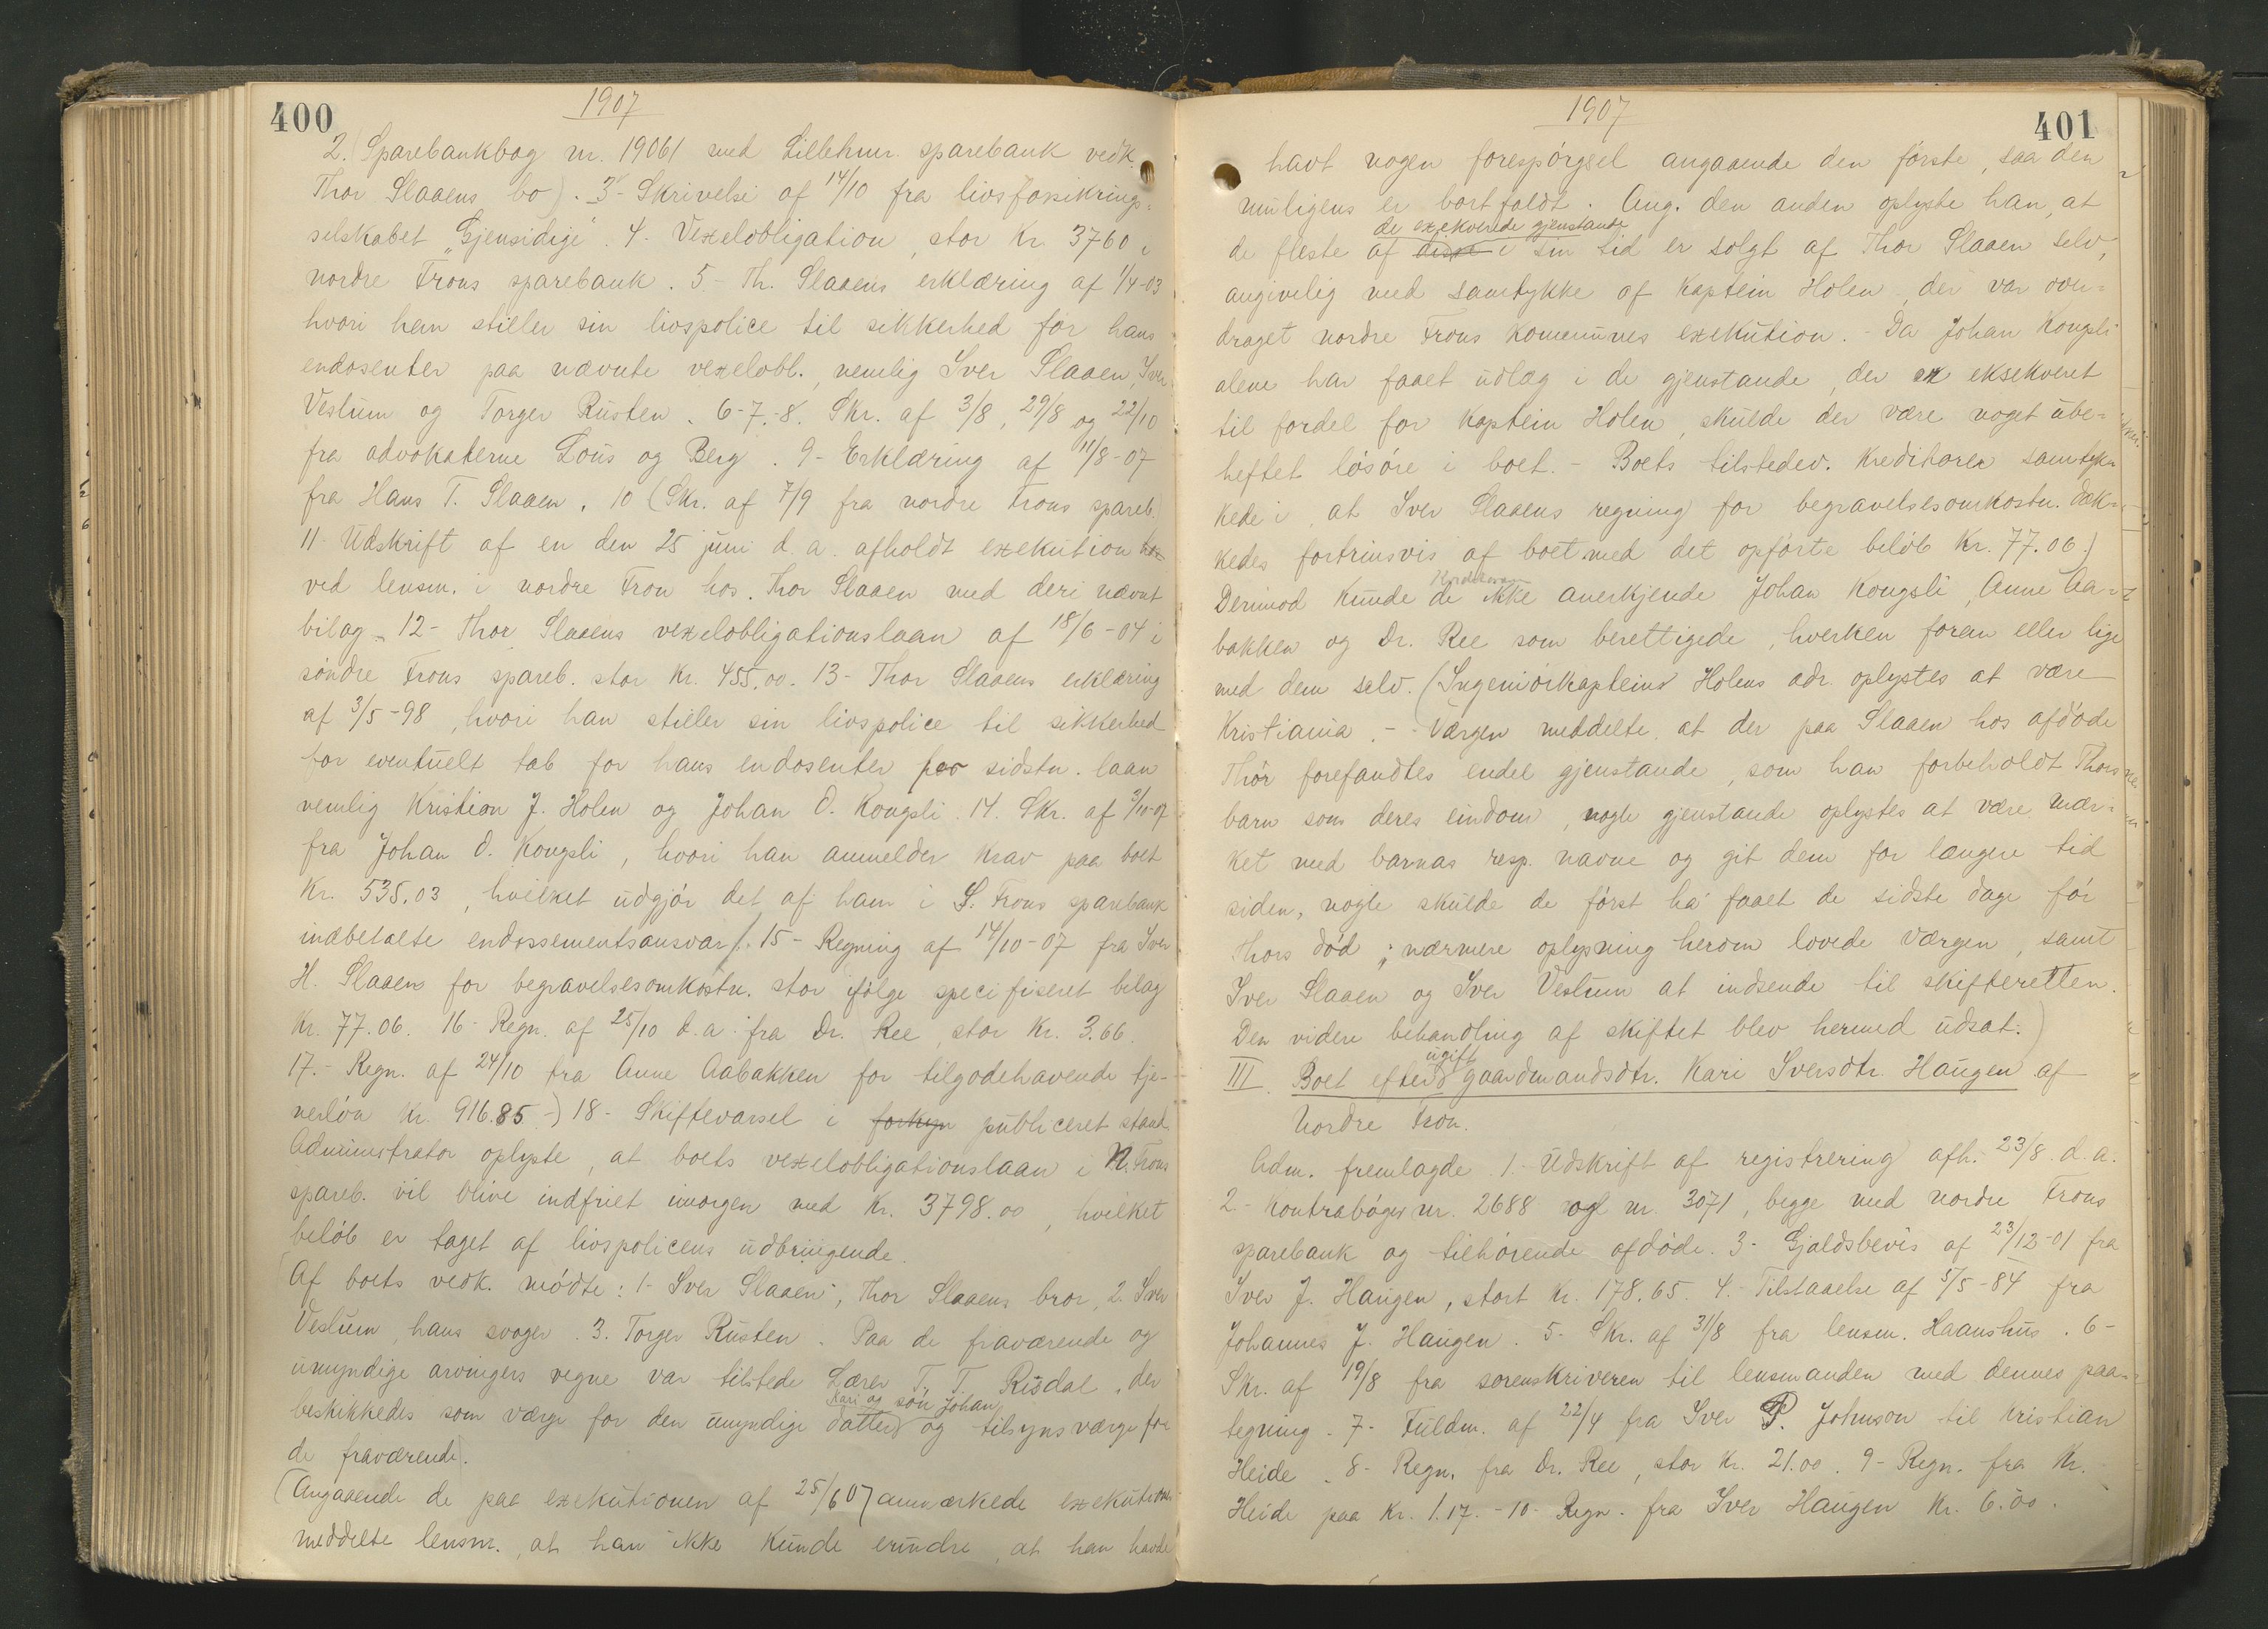 400
1907
2. (Sparebankbog nr. 19061 med Lillehmr. sparebank vedk.
Thor Slaaens bo). 3- Skrivelse af 14/10 fra livsforsikrings=
selskabet "Gjensidige". 4- Vexelobligation, stor Kr 3760 i
nordre Frons sparebank. 5.- Th. Slaaens erklæring af 1/4-03
hvori han stiller sin livspolice til sikkerhed for hans
endosenter paa nævnte vexelobl., nemlig Iver Slaaen, Iver
Veslum og Torger Rusten. 6-7.-8. Skr. af 3/8, 29/8 og 22/10
fra advokaterne Lous og Berg. 9- Erklæring af 11/8-07
fra Hans T. Slaaen. 10 (Skr. af 7/9 fra nordre Frons spareb.
11- Udskrift af en den 25 juni d.a. afholdt exekution
ved lensm. i nordre Fron hos Thor Slaaen med deri nævnt
bilag. 12- Thor Slaaens vexelobligationslaan af 18/6-04 i
søndre Frons spareb. stor Kr. 455,00. 13- Thor Slaaens erklæring
af 3/5-98, hvori han stiller sin livspolice til sikkerhed
for eventuelt tab for hans endosenter paa sidstn. laan
nemlig Kristian J. Holen og Johan O. Kongsli. 14. Skr. af 3/10-07
fra Johan O. Kongsli, hvori han anmelder krav paa boet
Kr. 535,03, hvilket udgjør det af ham i S. Frons sparebank
indbetalte endossementsansvar). 15- Regning af 14/10-07 fra Iver
H. Slaaen for begravelsesomkostn. stor ifølge specifiseret bilag
Kr. 77.06. 16- Regn. af 25/10 d.a. fra Dr. Ree, stor Kr. 3.66.
17.- Regn. af 24/10 fra Anne Aabakken for tilgodehavende tje-
nerløn Kr. 916.85-) 18- Skiftevarsel i forkyn publiceret stand.
Administrator oplyste, at boets vexelobligationslaan i N. Frons
spareb. vil blive indfriet imorgen med Kr. 3798.00, hvilket
beløb er taget af livspolicens udbringende.
(Af boets vedk. mødte: 1- Iver Slaaen, Thor Slaaens bror, 2. Iver
Veslum, hans svoger. 3. Torger Rusten. Paa de fraværende og
umyndige arvingers vegne var tilstede Lærer T. T. Risdal, der
Kari og søn Johan
beskikkedes som værge for den umyndige datter og tilsynsværge for
de fraværende).
(Angaaende de paa exekutionen af 25/6 07 anmærkede exekutioner
meddelte lensm., at han ikke kunde erindre, at han havde
401
1907
havt nogen forespørgsel angaaende den første, saa den
muligens er bortfaldt. Ang. den anden oplyste han, at
de exekverede gjenstande
de fleste af disse i sin tid er solgt af Thor Slaaen selv,
angivelig med samtykke af Kaptein Holen, der var over=
draget nordre Frons kommunes exekution. - Da Johan Kongsli
alene har faaet udlæg i de gjenstande, der er eksekveret
til fordel for Kaptein Holen, skulde der være noget ube=
heftet løsøre i boet. - Boets tilstedev. Kreditorer samtyk=
kede i, at Iver Slaaens regning for begravelsesomkostn. dæk=
kedes fortrinsvis af boet med det opførte beløb Kr. 77.06.)
Kreditorerne
Derimod kunde de ikke anerkjende Johan Kongsli, Anne Aa=
bakken og Dr. Ree som berettigede, hverken foran eller lige
med dem selv. (Ingeniørkaptein Holens adr. oplystes at være
Kristiania. - Værgen meddelte, at der paa Slaaen hos afdøde
Thor forefandtes endel gjenstande, som han forbeholdt Thors
barn som deres eindom, nogle gjenstande oplystes at være mær=
ket med barnas resp. navne og git dem for længere tid
siden, nogle skulde de først ha faaet de sidste dage før
Thors død; nærmere oplysning herom lovede Værgen, samt
Iver Slaaen og Iver Veslum at indsende til skifteretten.
Den videre behandling af skiftet blev hermed udsat.)
ugift
III. Boet efter gaardmandsdtr. Kari Iversdtr. Haugen af
Nordre Fron.
Adm. fremlagde 1.- Udskrift af registrering afh. 23/8 d.a.
2- Kontrabøger nr. 2688 og nr. 3071, begge med nordre Frons
sparebank og tilhørende afdøde. 3- Gjældsbevis af 23/12-01 fra
Iver J. Haugen, stort Kr. 178.65. 4.- Tilstaaelse af 5/5-84 fra
Johannes J. Haugen. 5- Skr. af 31/8 fra lensm. Haanshus. 6-
Skr. af 19/8 fra sorenskriveren til lensmanden med dennes paa=
tegning. 7- Fuldm. af 22/4 fra Iver P. Johnson til Kristian
Heide. 8- Regn. fra Dr. Ree, stor Kr. 21.00. 9- Regn. fra Kr.
Heide paa Kr. 1.17. -10- Regn. fra Iver Haugen Kr. 6.00.